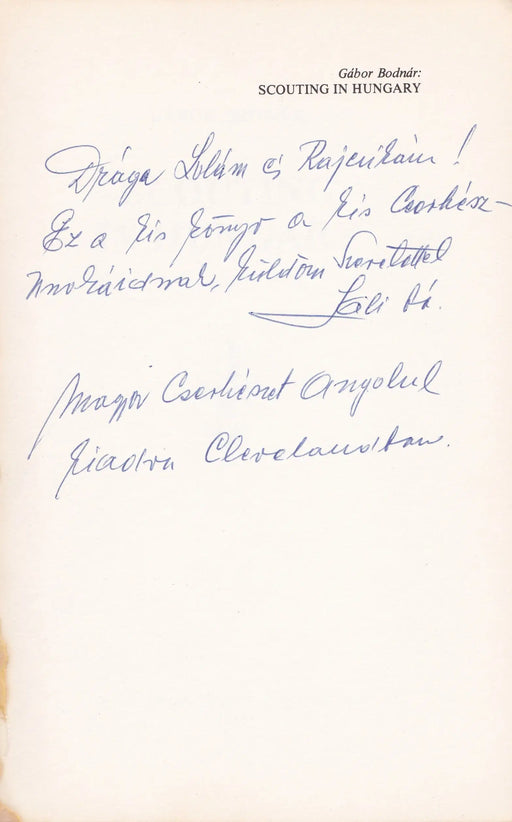 Gábor Bodnár:
SCOUTING IN HUNGARY
Drága Lolám és Rajcsikáim!
Ez a kis könyv a kis Cserkész-
unokáidnak, küldöm Szeretettel
bá.
Magyar Cserkészet Angolul
kiadva Clevelandban.